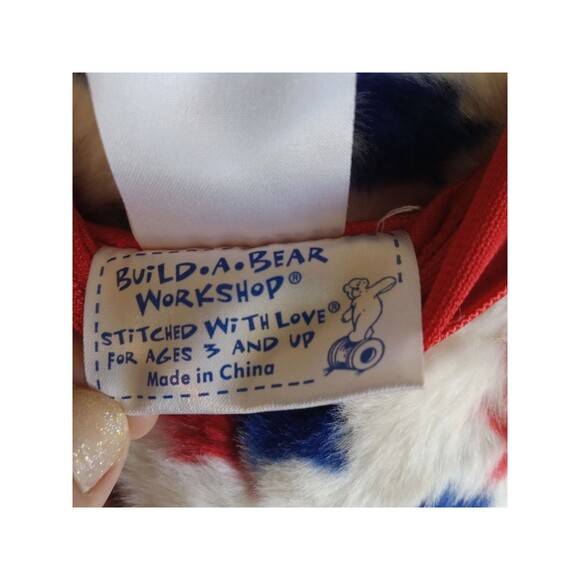 BUiLD•A•BEAR
WORKSHOP®
STiTCHED WiTH LOVE®
FOR AGES 3 AND UP
Made in China